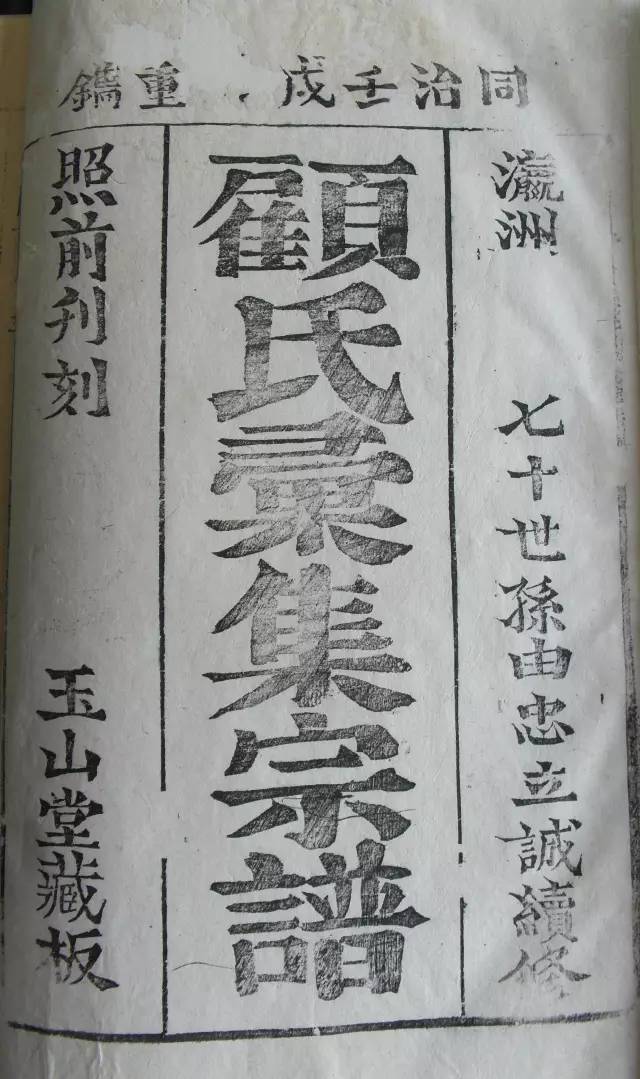 同治壬戌 重鐫
瀛洲 七十世孫由忠立誠續修
顧氏彙集宗譜
照前刋刻 玉山堂藏板